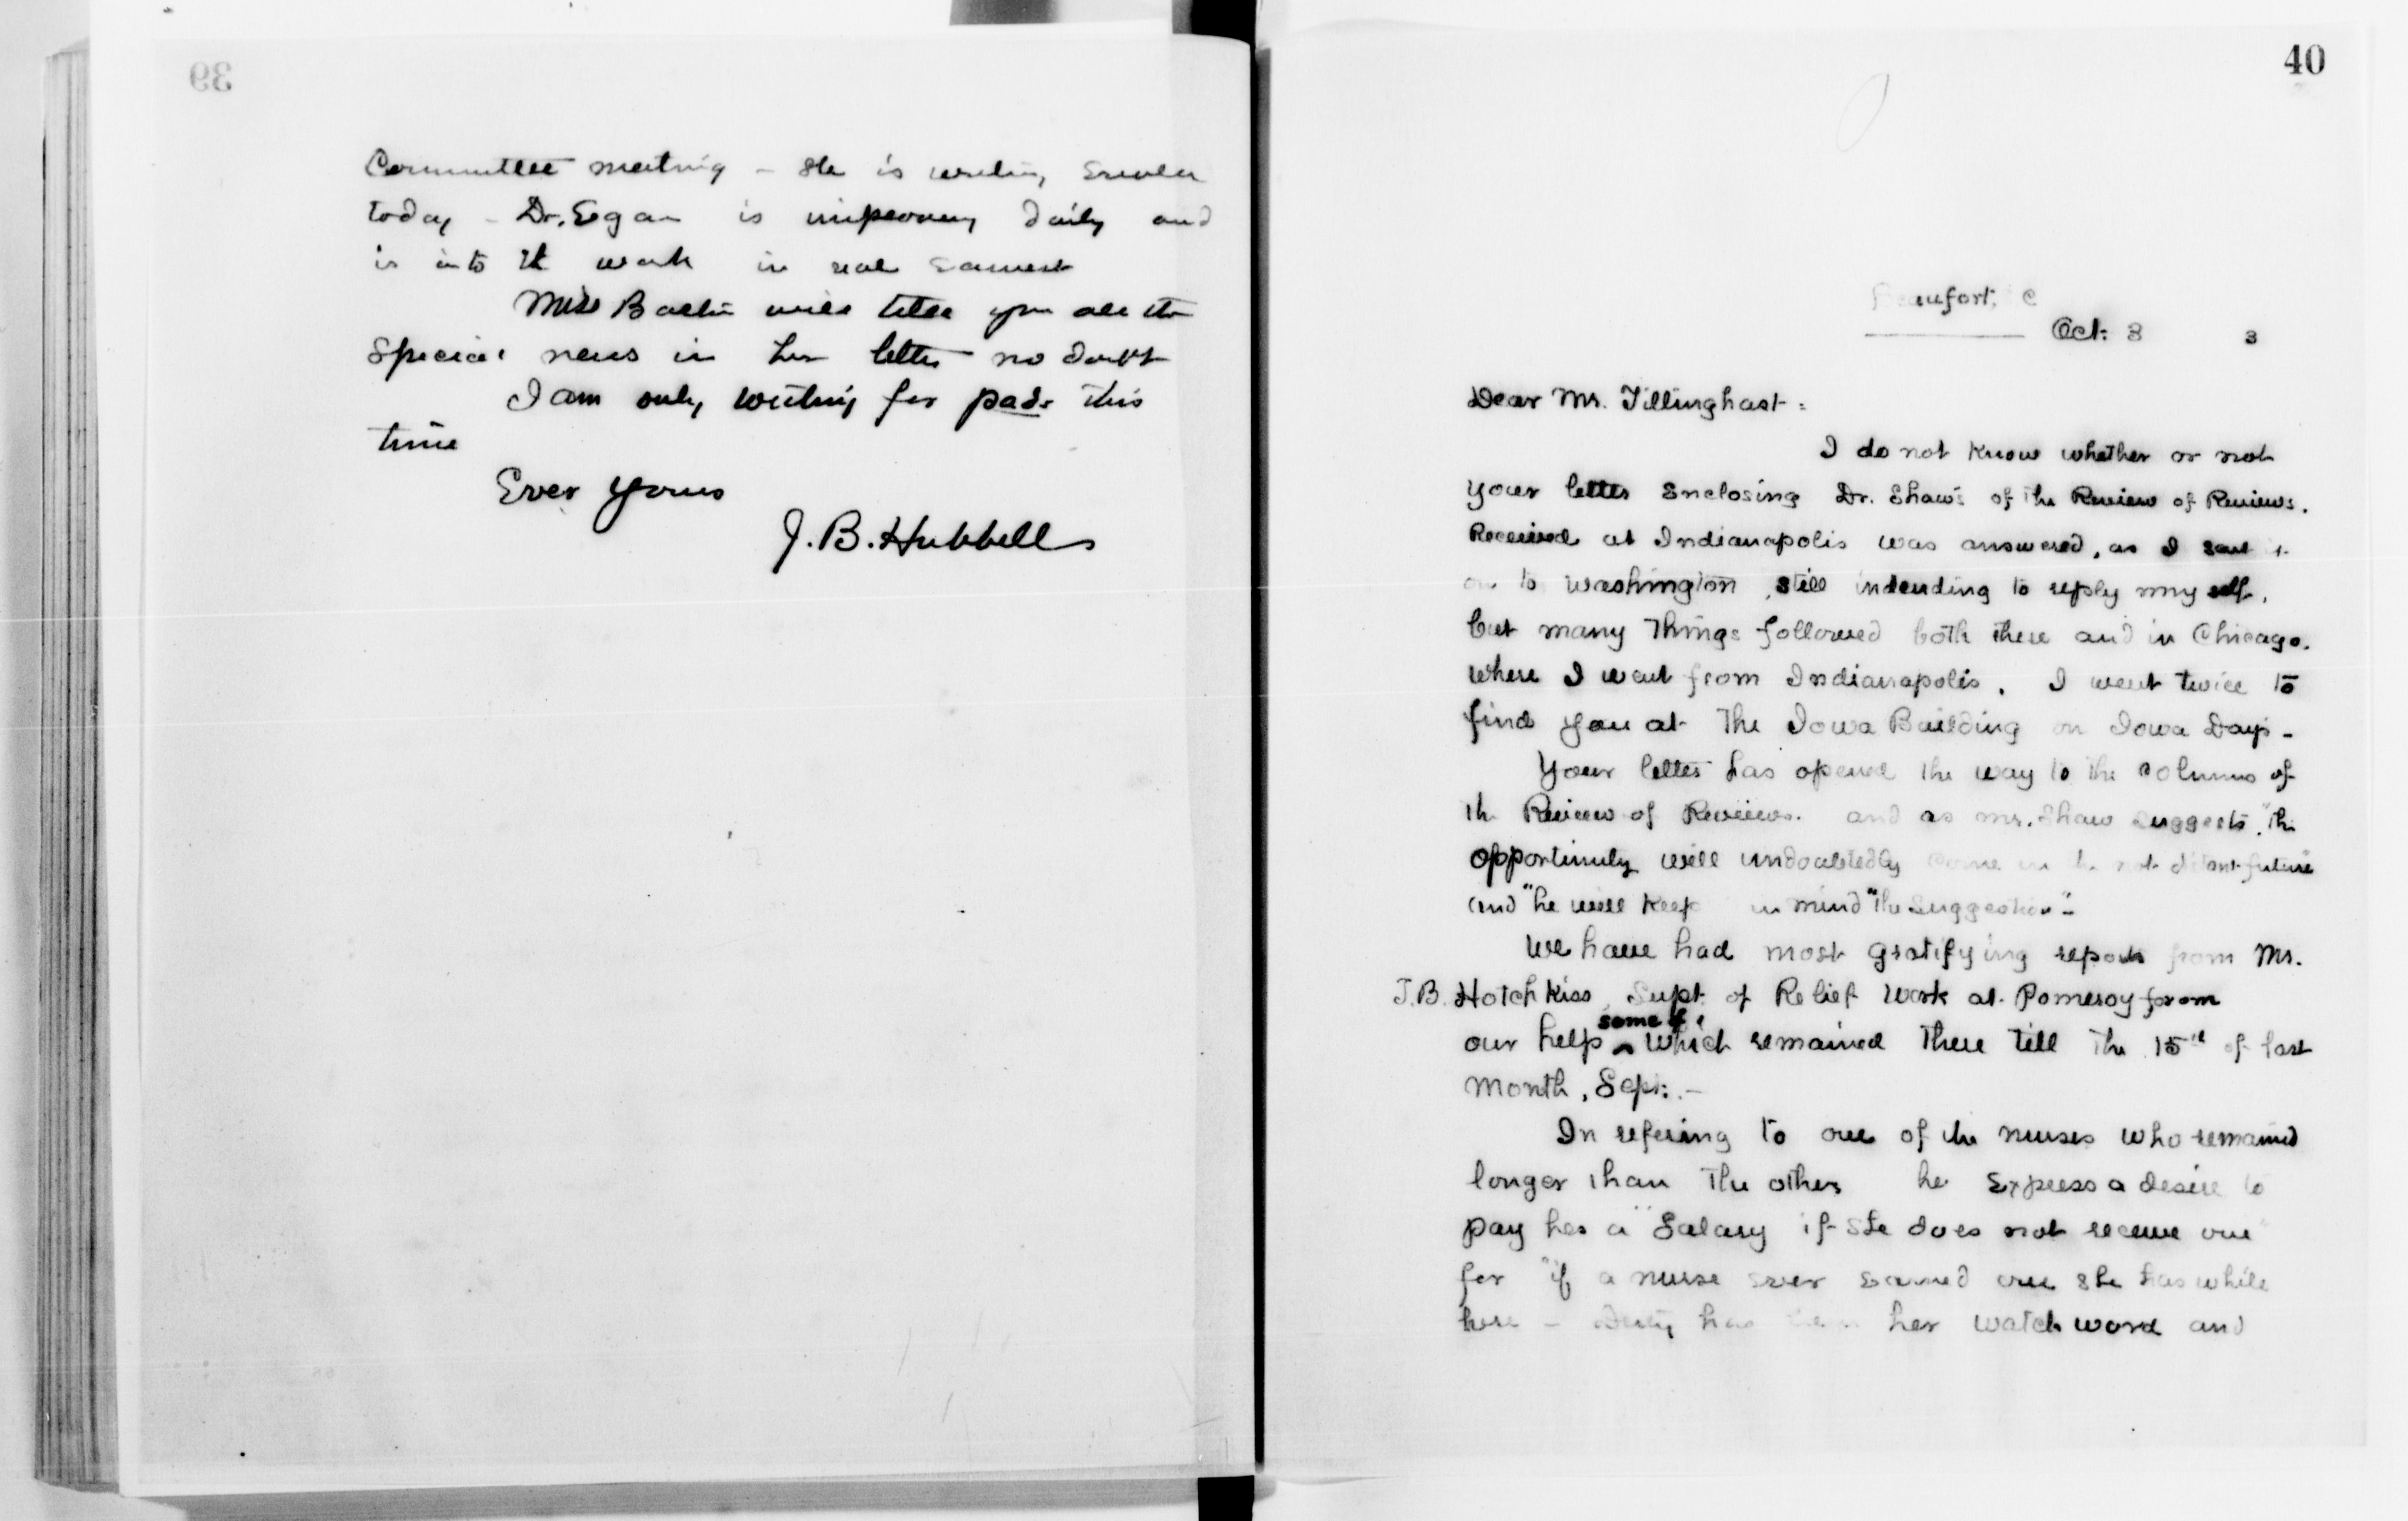 39
Committee meeting - she is writing
today - Dr. Egan is improving daily and
is into the work in real earnest
Miss Barton will tell you all the
special news in her letter no doubt
I am only writing for pads this
time
Ever yours
J. B. Hubbell
40
Beaufort, C
Oct: 3 3
Dear Mr. Tillinghast:
I do not know whether or not
your letter enclosing Dr. Shaw's of the Review of Reviews.
Received at Indianapolis was answered, as I sent it
on to Washington, still indending to reply myself,
but many things followed both there and in Chicago.
where I went from Indianapolis. I went twice to
find you at the Iowa Building on Iowa Days -
Your letter has opened the way to the columns of
the Review of Reviews. and as Mr. Shaw suggests, "the
opportinuty will undoubtedly come in the not distant future"
and "he will keep in mind "the suggestion"-
We have had most gratifying reports from Mr.
J.B. Hotchkiss, Supt. of Relief Work at Pomeroy from
some of
our help ^ which remained there till the 15th of last
month, Sept. -
In refering to one of the nurses who remained
longer than the others he express a desire to
pay her a "Salary if she does not receive one"
for "if a nurse ever earned one she has while
here - Duty has been her watch word and